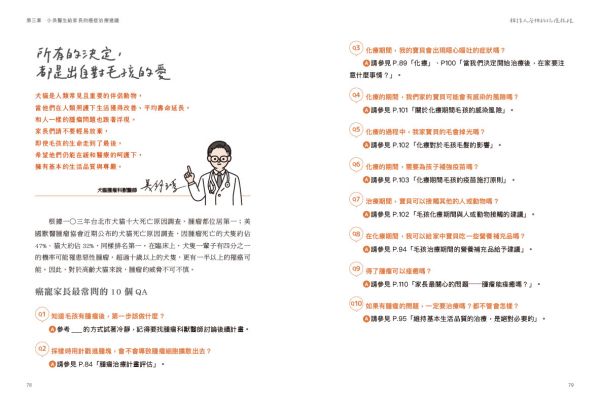 第三章　小吳醫生給家長的癌症治療建議
所有的決定，
都是出自對毛孩的愛
犬貓是人類常見且重要的伴侶動物，
當他們在人類照護下生活獲得改善、平均壽命延長，
和人一樣的腫瘤問題也跟著浮現。
家長們請不要輕易放棄，
即使毛孩的生命走到了最後，
希望他們仍能在緩和醫療的呵護下，
擁有基本的生活品質與尊嚴。
犬貓腫瘤科獸醫師
根據一〇三年台北市犬貓十大死亡原因調查，腫瘤都位居第一；美
國獸醫腫瘤協會近期公布的犬貓死亡原因調查，因腫瘤死亡的犬隻約佔
47%，貓大約佔 32%，同樣排名第一。在臨床上，犬隻一輩子有四分之一
的機率可能罹患惡性腫瘤，超過十歲以上的犬隻，更有一半以上的罹癌可
能。因此，對於高齡犬貓來說，腫瘤的威脅不可不慎。
癌寵家長最常問的 10 個 QA
Q1 知道毛孩有腫瘤後，第一步該做什麼？
A 參考 ___ 的方式試著冷靜，記得要找腫瘤科獸醫師討論後續計畫。
Q2 採樣時用針戳進腫塊，會不會導致腫瘤細胞擴散出去？
A 請參見 P.84「腫瘤治療計畫評估」。
78
Q3 化療期間，我的寶貝會出現噁心嘔吐的症狀嗎？
A 請參見 P.89「化療」、P100「當我們決定開始治療後，在家要注
意什麼事情？」。
Q4 化療的期間，我們家的寶貝可能會有感染的風險嗎？
A 請參見 P.101「關於化療期間毛孩的感染風險」。
Q5 化療的過程中，我家寶貝的毛會掉光嗎？
A 請參見 P.102「化療對於毛孩毛髮的影響」。
Q6 化療的期間，需要為孩子補強疫苗嗎？
A 請參見 P.102「化療期間毛孩的疫苗施打原則」。
Q7 治療期間，寶貝可以接觸其他的人或動物嗎？
A 請參見 P.102「毛孩化療期間與人或動物接觸的建議」。
Q8 在化療期間，我可以給家中寶貝吃一些營養補充品嗎？
A 請參見 P.94「毛孩治療期間的營養補充品給予建議」。
Q9 得了腫瘤可以痊癒嗎？
A 請參見 P.110「家長最關心的問題——腫瘤能痊癒嗎？」。
Q10 如果有腫瘤的問題，一定要治療嗎？都不管會怎樣？
A 請參見 P.95「維持基本生活品質的治療，是絕對必要的」。
79